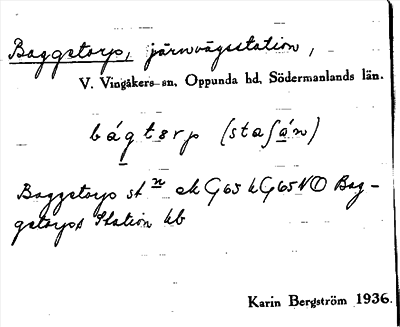 Baggetorp, järnvägsstation,
V. Vingåkers sn, Oppunda hd, Södermanlands län.
bágtɘrp (staʃán)
Baggetorp st n ek G65 k G65 NO Bag-
getorps Station hb
Karin Bergström 1936.